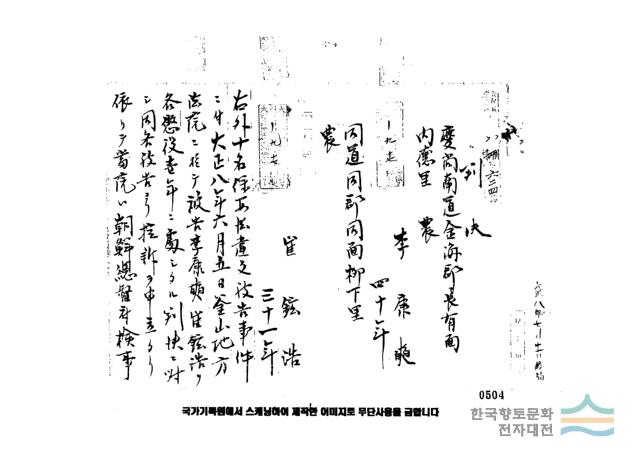 判決
慶尚南道金海郡長有面
内德里 農
李康奭
四十年
同道同郡同面柳下里
農
崔鉉浩
三十一年
右外十名保安法違反被告事件
ニ付大正八年六月五日釜山地方
法院ニ於テ被告李康奭崔鉉浩ヲ
各懲役壱年ニ處シタル判決ニ對
シ同各被告ヨリ控訴ヲ申立タルニ
依リテ當院ハ朝鮮總督府検事
0504
국가기록원에서 스캐닝하여 제작한 이미지로 무단사용을 금합니다
한국향토문화
전자대전